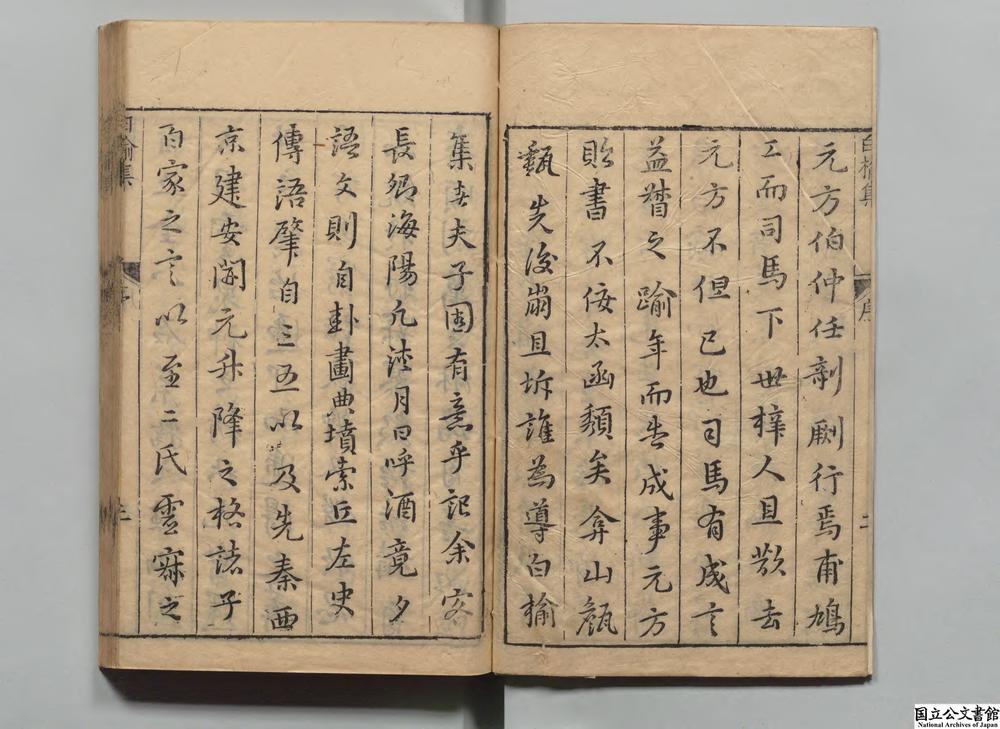 元方伯仲任剞劂行焉甫鳩
工而司馬下世梓人且歘去
元方不但已也司馬有成言
益暜之踰年而告成事元方
貽書不佞太函頹矣弇山
甎先後崩且坼誰為導白榆
集者夫子固有意乎記余客
長卿海陽凡浹月日呼酒竟夕
語文則自卦畫典墳索丘左史
傳語肇自三五以及先秦西
京建安開元升降之格諸子
百家之言以至二氏靈寐之
白榆集
序
二
白榆集
序
三
国立公文書館
National Archives of Japan